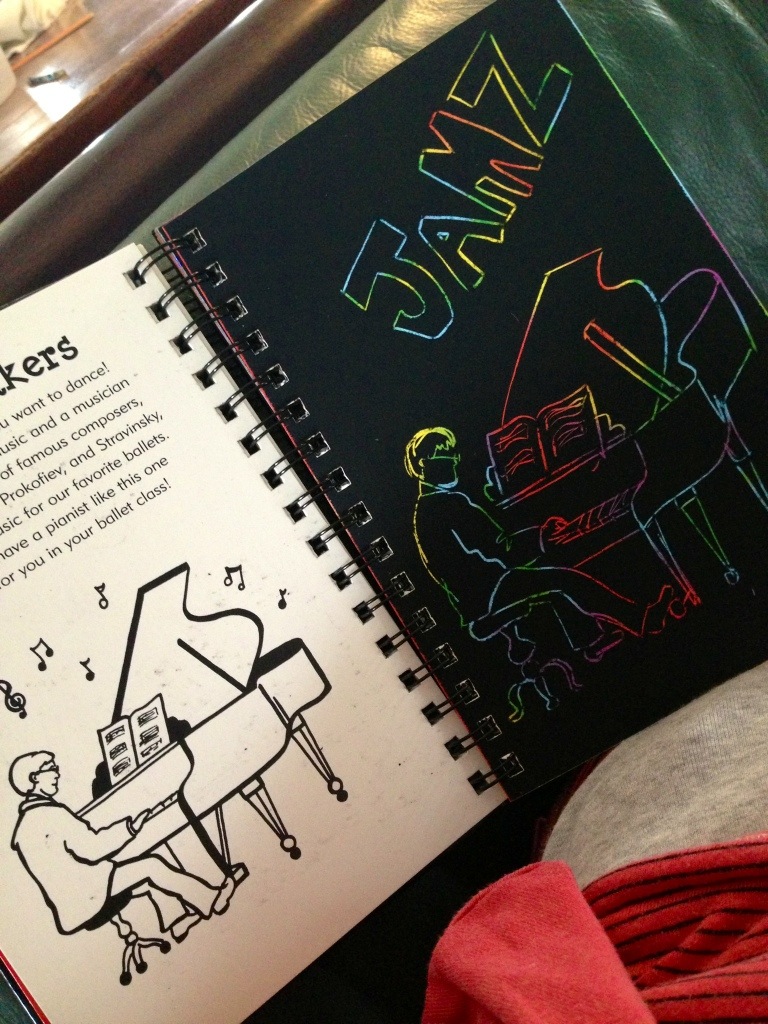 kers
u want to dance!
usic and a musician
of famous composers,
Prokofiev, and Stravinsky,
sic for our favorite ballets.
have a pianist like this one
or you in your ballet class!
JAMZ